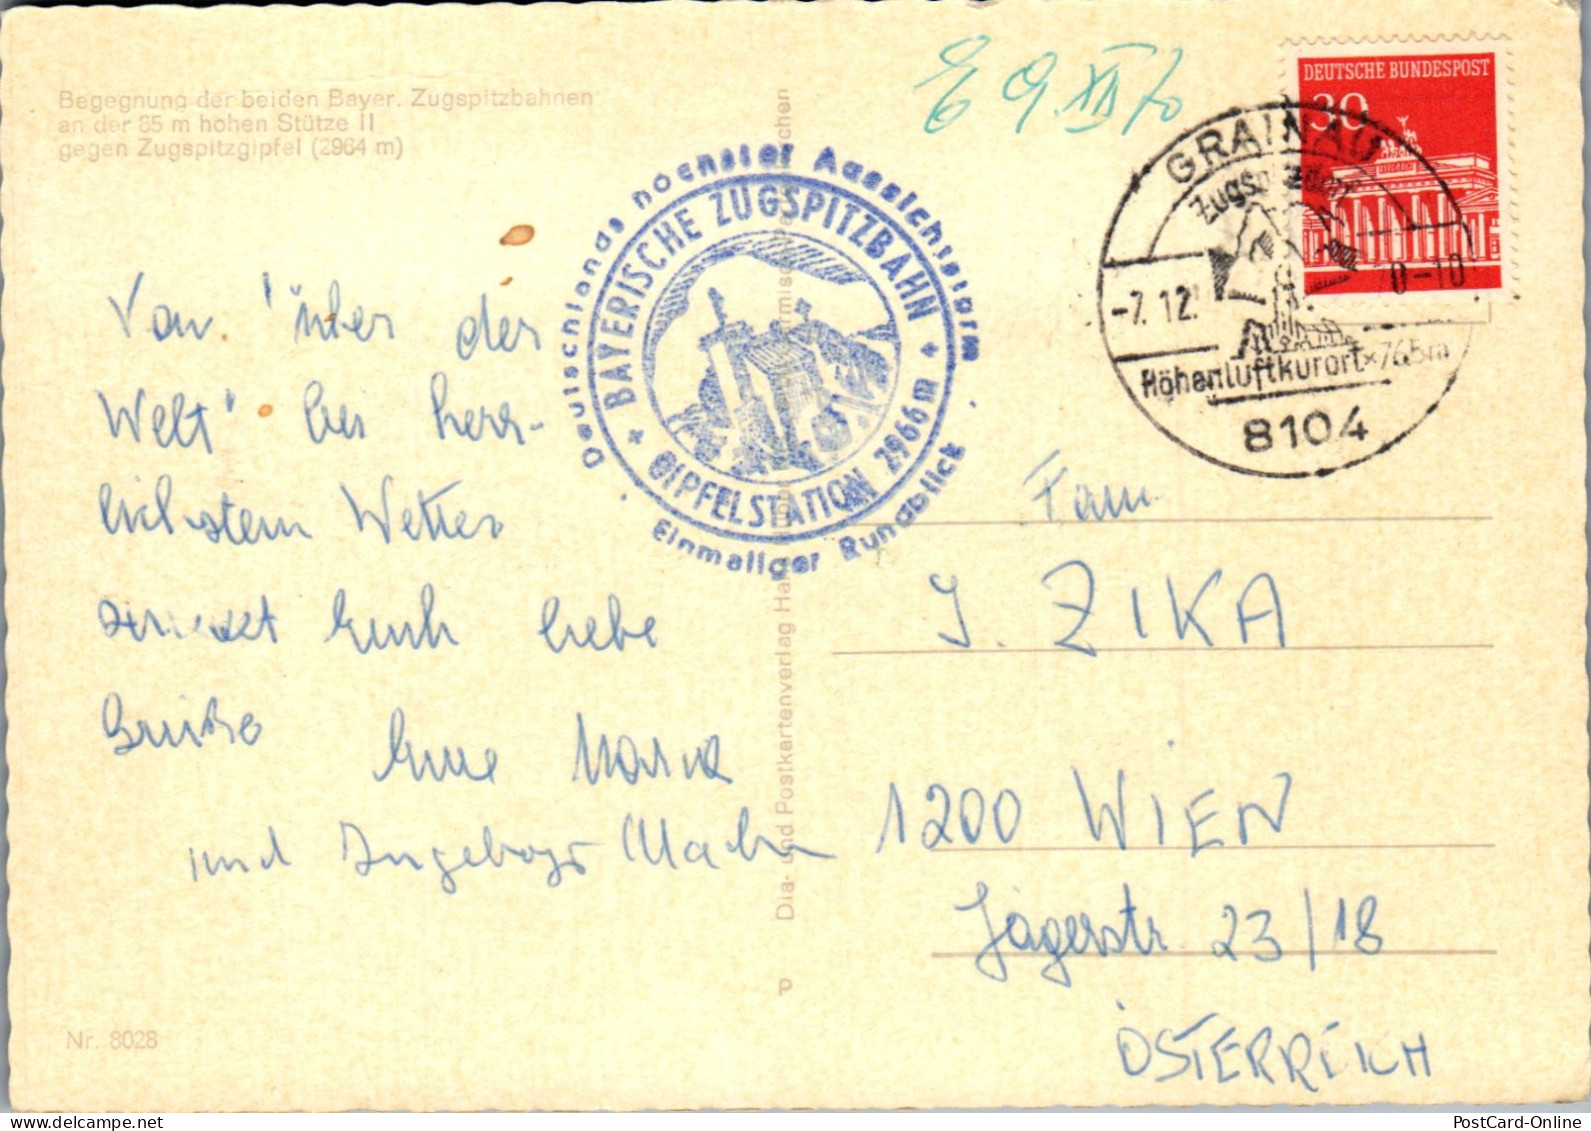 Begegnung der beiden Bayer. Zugspitzbahnen
an der 85 m hohen Stütze II
gegen Zugspitzgipfel (2964 m)
E 9. XII 70
DEUTSCHE BUNDESPOST
30
GRAINAU
Zugspitzdorf
-7.12.
8-10
Höhenluftkurort × 765m
8104
Deutschlands höchster Aussichtsturm
BAYERISCHE ZUGSPITZBAHN
GIPFELSTATION 2966 m
Einmaliger Rundblick
Von "über der
Welt" bei herr-
lichstem Wetter
sendet Euch liebe
Grüße Eure Maria
und Ingeborg
Dia- und Postkartenverlag
P
Nr. 8028
Fam.
J. ZIKA
1200 WIEN
Jägerstr. 23/18
ÖSTERREICH
PostCard-Online